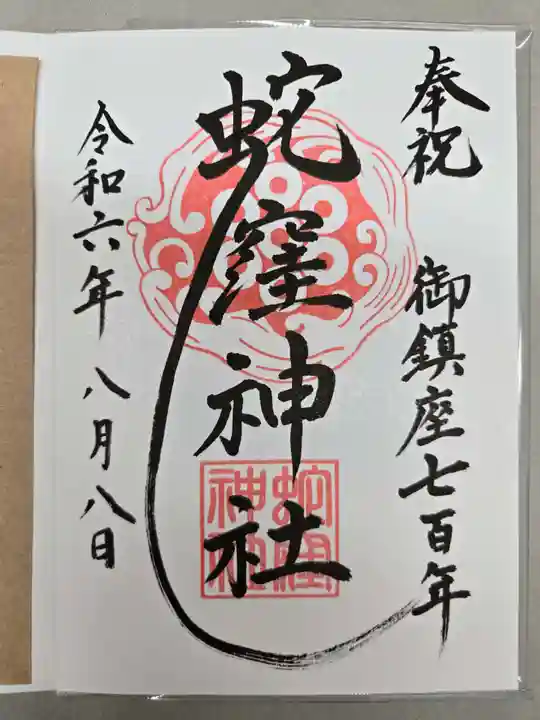 奉祝 御鎮座七百年
蛇窪神社
蛇窪神社
令和六年 八月八日